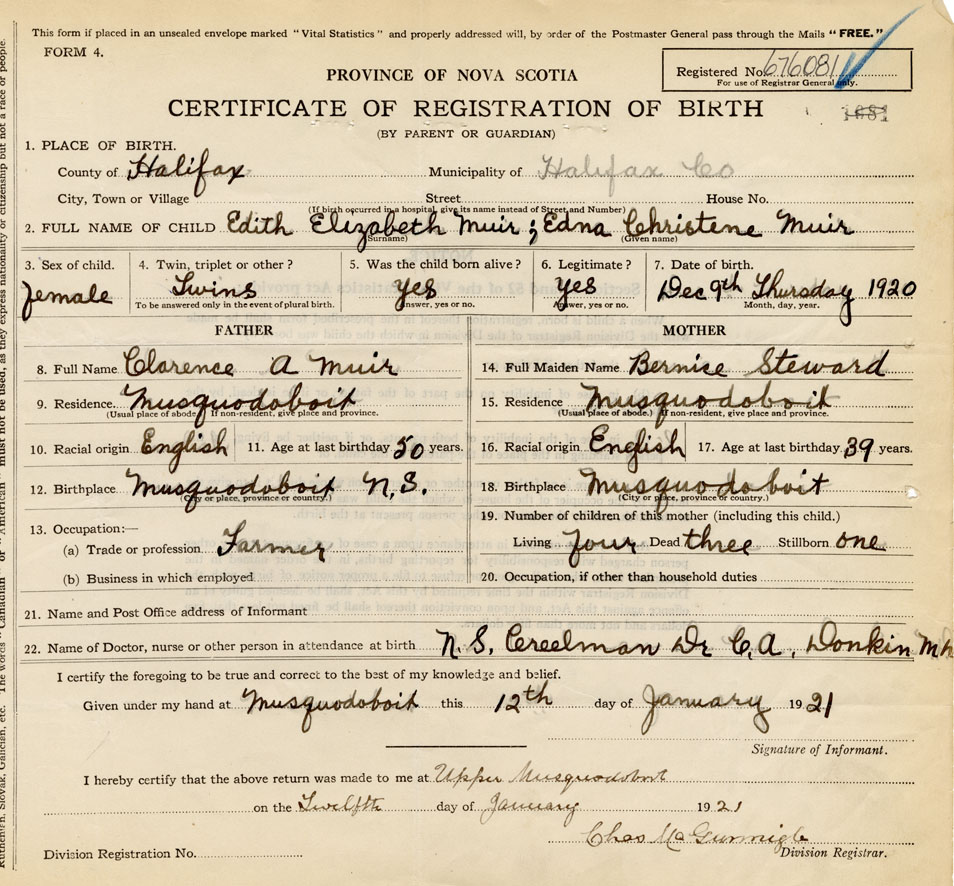 This form if placed in an unsealed envelope marked "Vital Statistics" and properly addressed will, by order of the Postmaster General pass through the Mails "FREE."
FORM 4.
Registered No. 676081
For use of Registrar General only.
PROVINCE OF NOVA SCOTIA
CERTIFICATE OF REGISTRATION OF BIRTH
(BY PARENT OR GUARDIAN)
1. PLACE OF BIRTH.
County of Halifax Municipality of Halifax Co
City, Town or Village Street House No.
(If birth occurred in a hospital, give its name instead of Street and Number)
2. FULL NAME OF CHILD Edith Elizabeth Muir ; Edna Christene Muir
(Surname) (Given name)
3. Sex of child. 4. Twin, triplet or other? 5. Was the child born alive? 6. Legitimate? 7. Date of birth.
female Twins yes yes Dec 9th Thursday 1920
To be answered only in the event of plural birth. Answer, yes or no. Answer, yes or no. Month, day, year.
FATHER MOTHER
8. Full Name Clarence A Muir 14. Full Maiden Name Bernice Steward
9. Residence. Musquodoboit 15. Residence Musquodoboit
(Usual place of abode) If non-resident, give place and province. (Usual place of abode.) If non-resident, give place and province.
10. Racial origin English 11. Age at last birthday 50 years. 16. Racial origin English 17. Age at last birthday 39 years.
12. Birthplace Musquodoboit N.S. 18. Birthplace Musquodoboit
(City or place, province or country.) (City or place, province or country.)
19. Number of children of this mother (including this child.)
13. Occupation:—
(a) Trade or profession Farmer Living four Dead three Stillborn one
(b) Business in which employed 20. Occupation, if other than household duties
21. Name and Post Office address of Informant
22. Name of Doctor, nurse or other person in attendance at birth N. S. Creelman Dr C. A. Donkin
I certify the foregoing to be true and correct to the best of my knowledge and belief.
Given under my hand at Musquodoboit this 12th day of January 1921
Signature of Informant.
I hereby certify that the above return was made to me at Upper Musquodoboit
on the Twelfth day of January 1921
Chas
Division Registration No. Division Registrar.